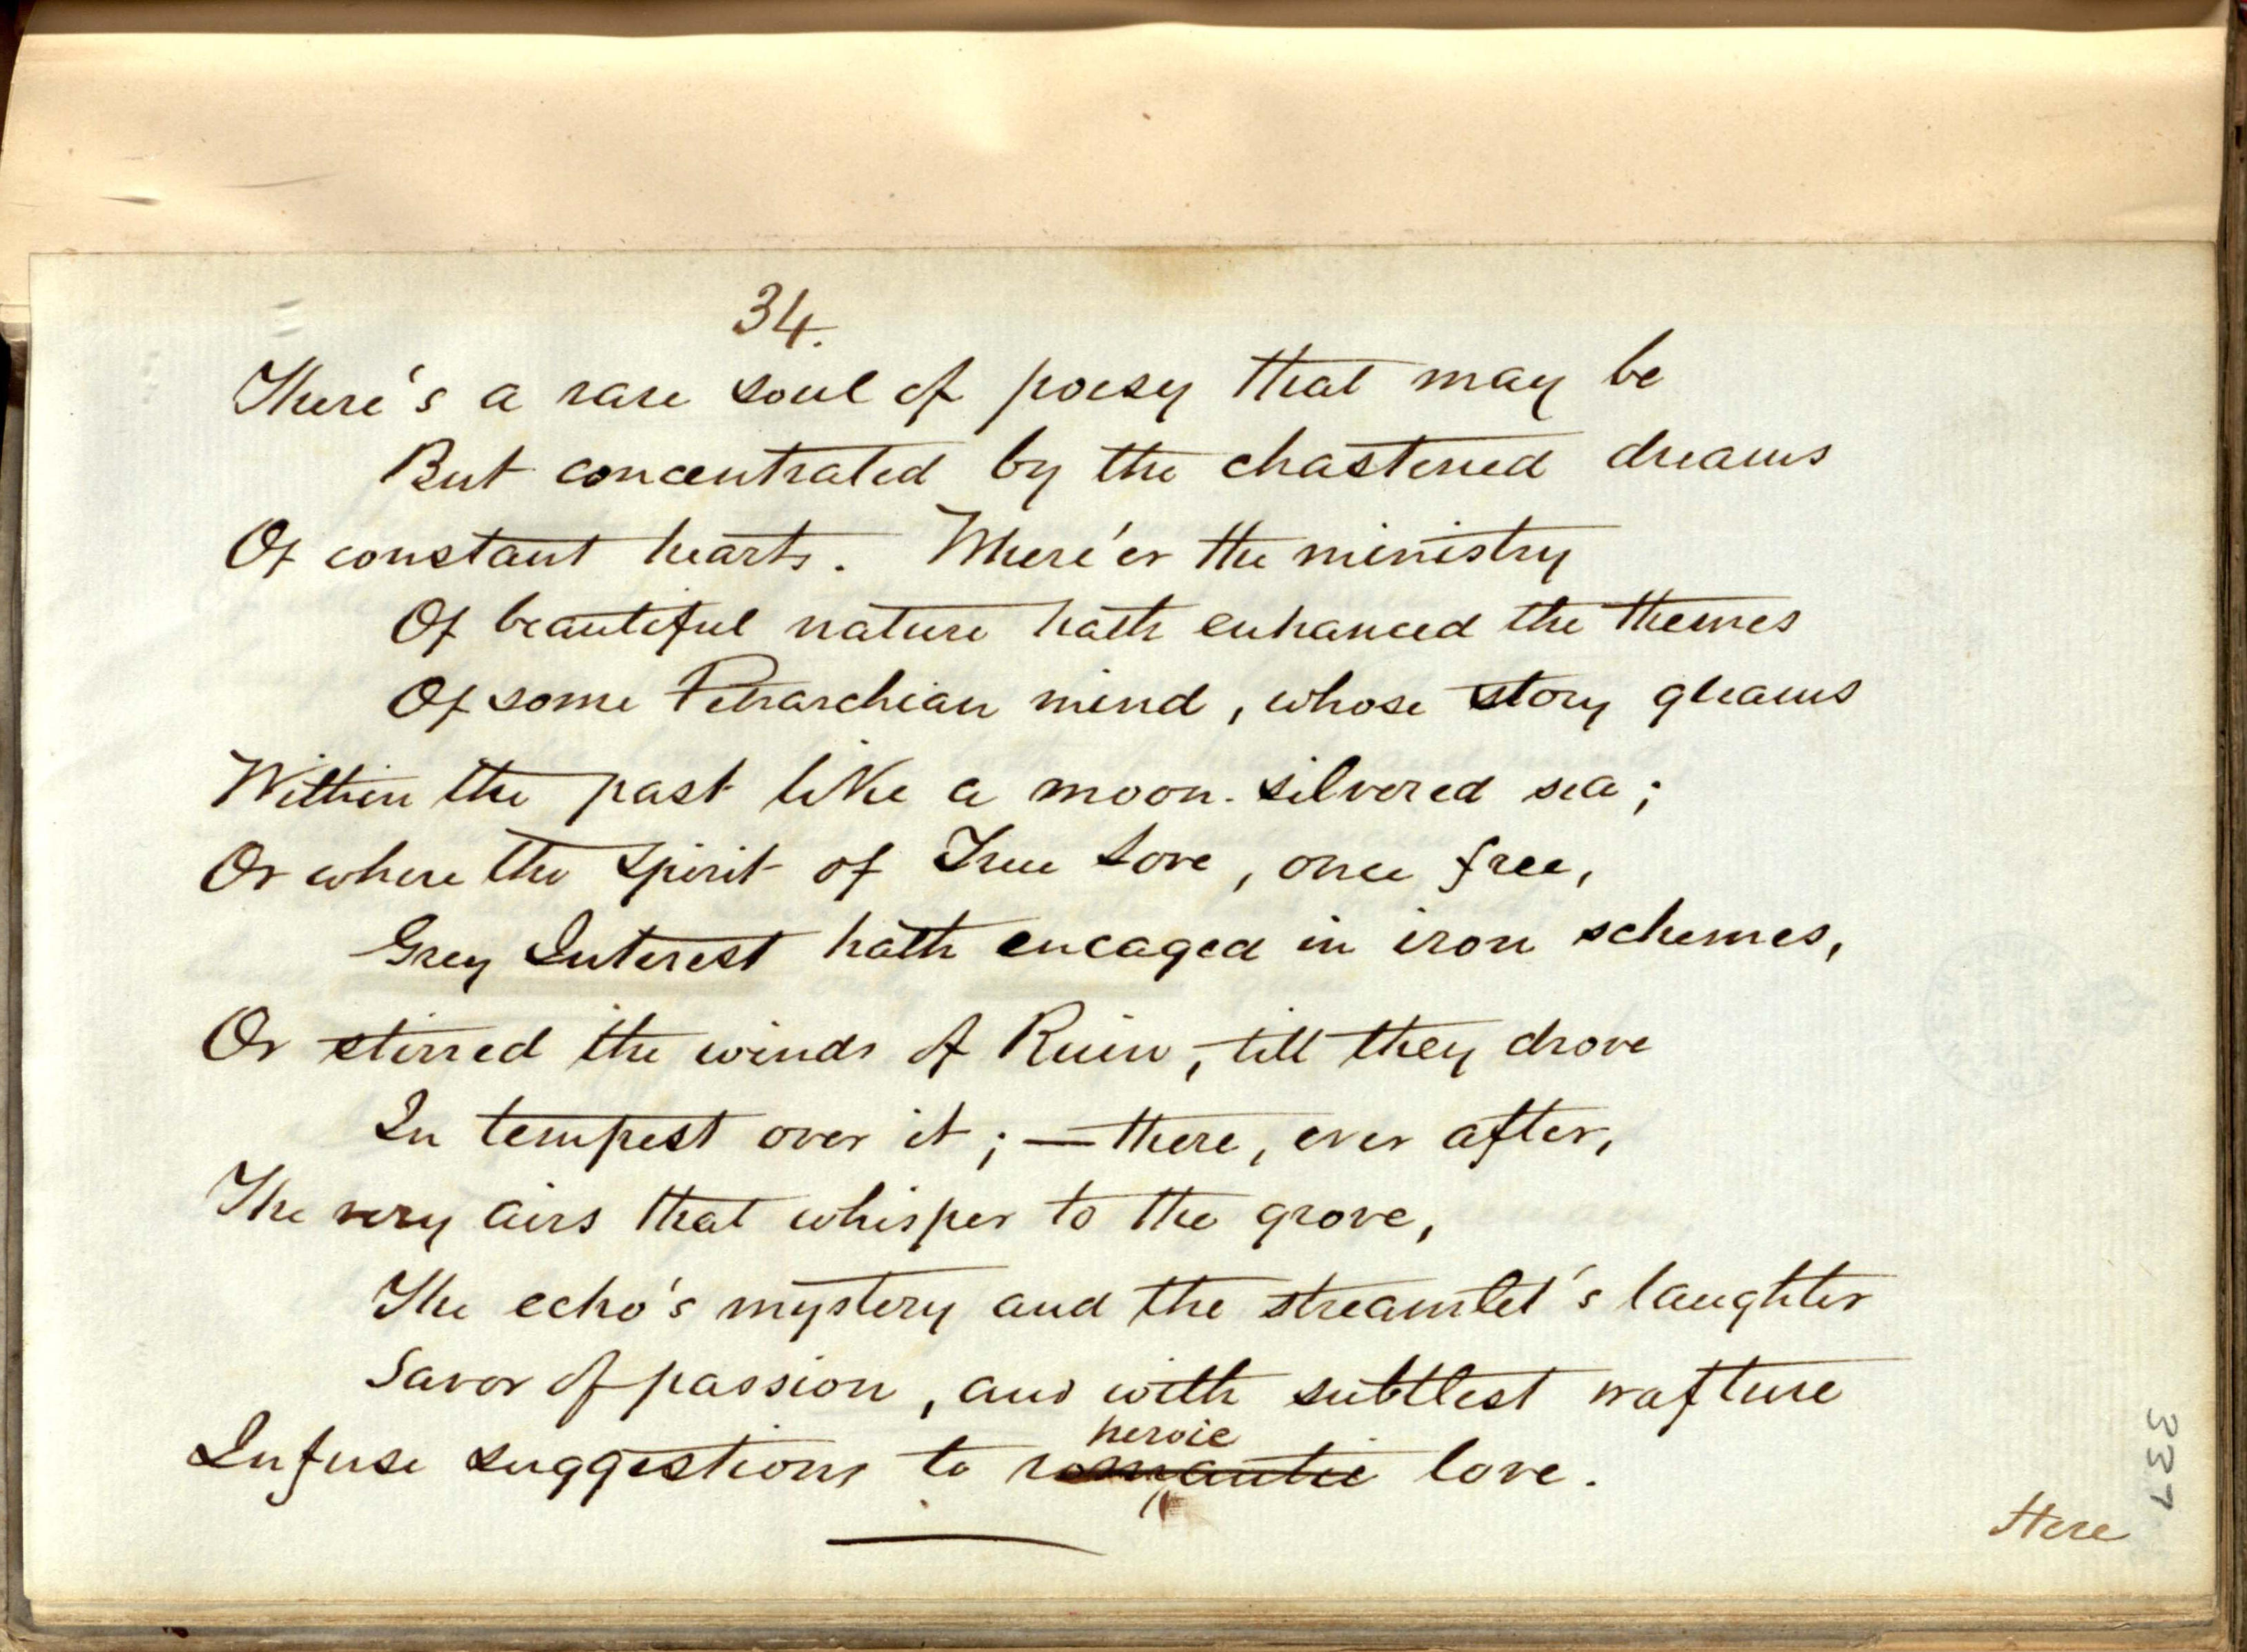 34.
There's a rare soul of poesy that may be
But concentrated by the chastened dreams
Of constant hearts. Where'er the ministry
Of beautiful nature hath enhanced the themes
Of some Petrarchian mind, whose story gleams
Within the past like a moon-silvered sea;
Or where the Spirit of True Love, once free,
Grey Interest hath encaged in iron schemes,
Or stirred the winds of Ruin, till they drove
In tempest over it; — there, ever after,
The very airs that whisper to the grove,
The echo's mystery and the streamlet's laughter
Savor of passion, and with subtlest wafture
heroic
Infuse suggestions to romantic love.
Here
337